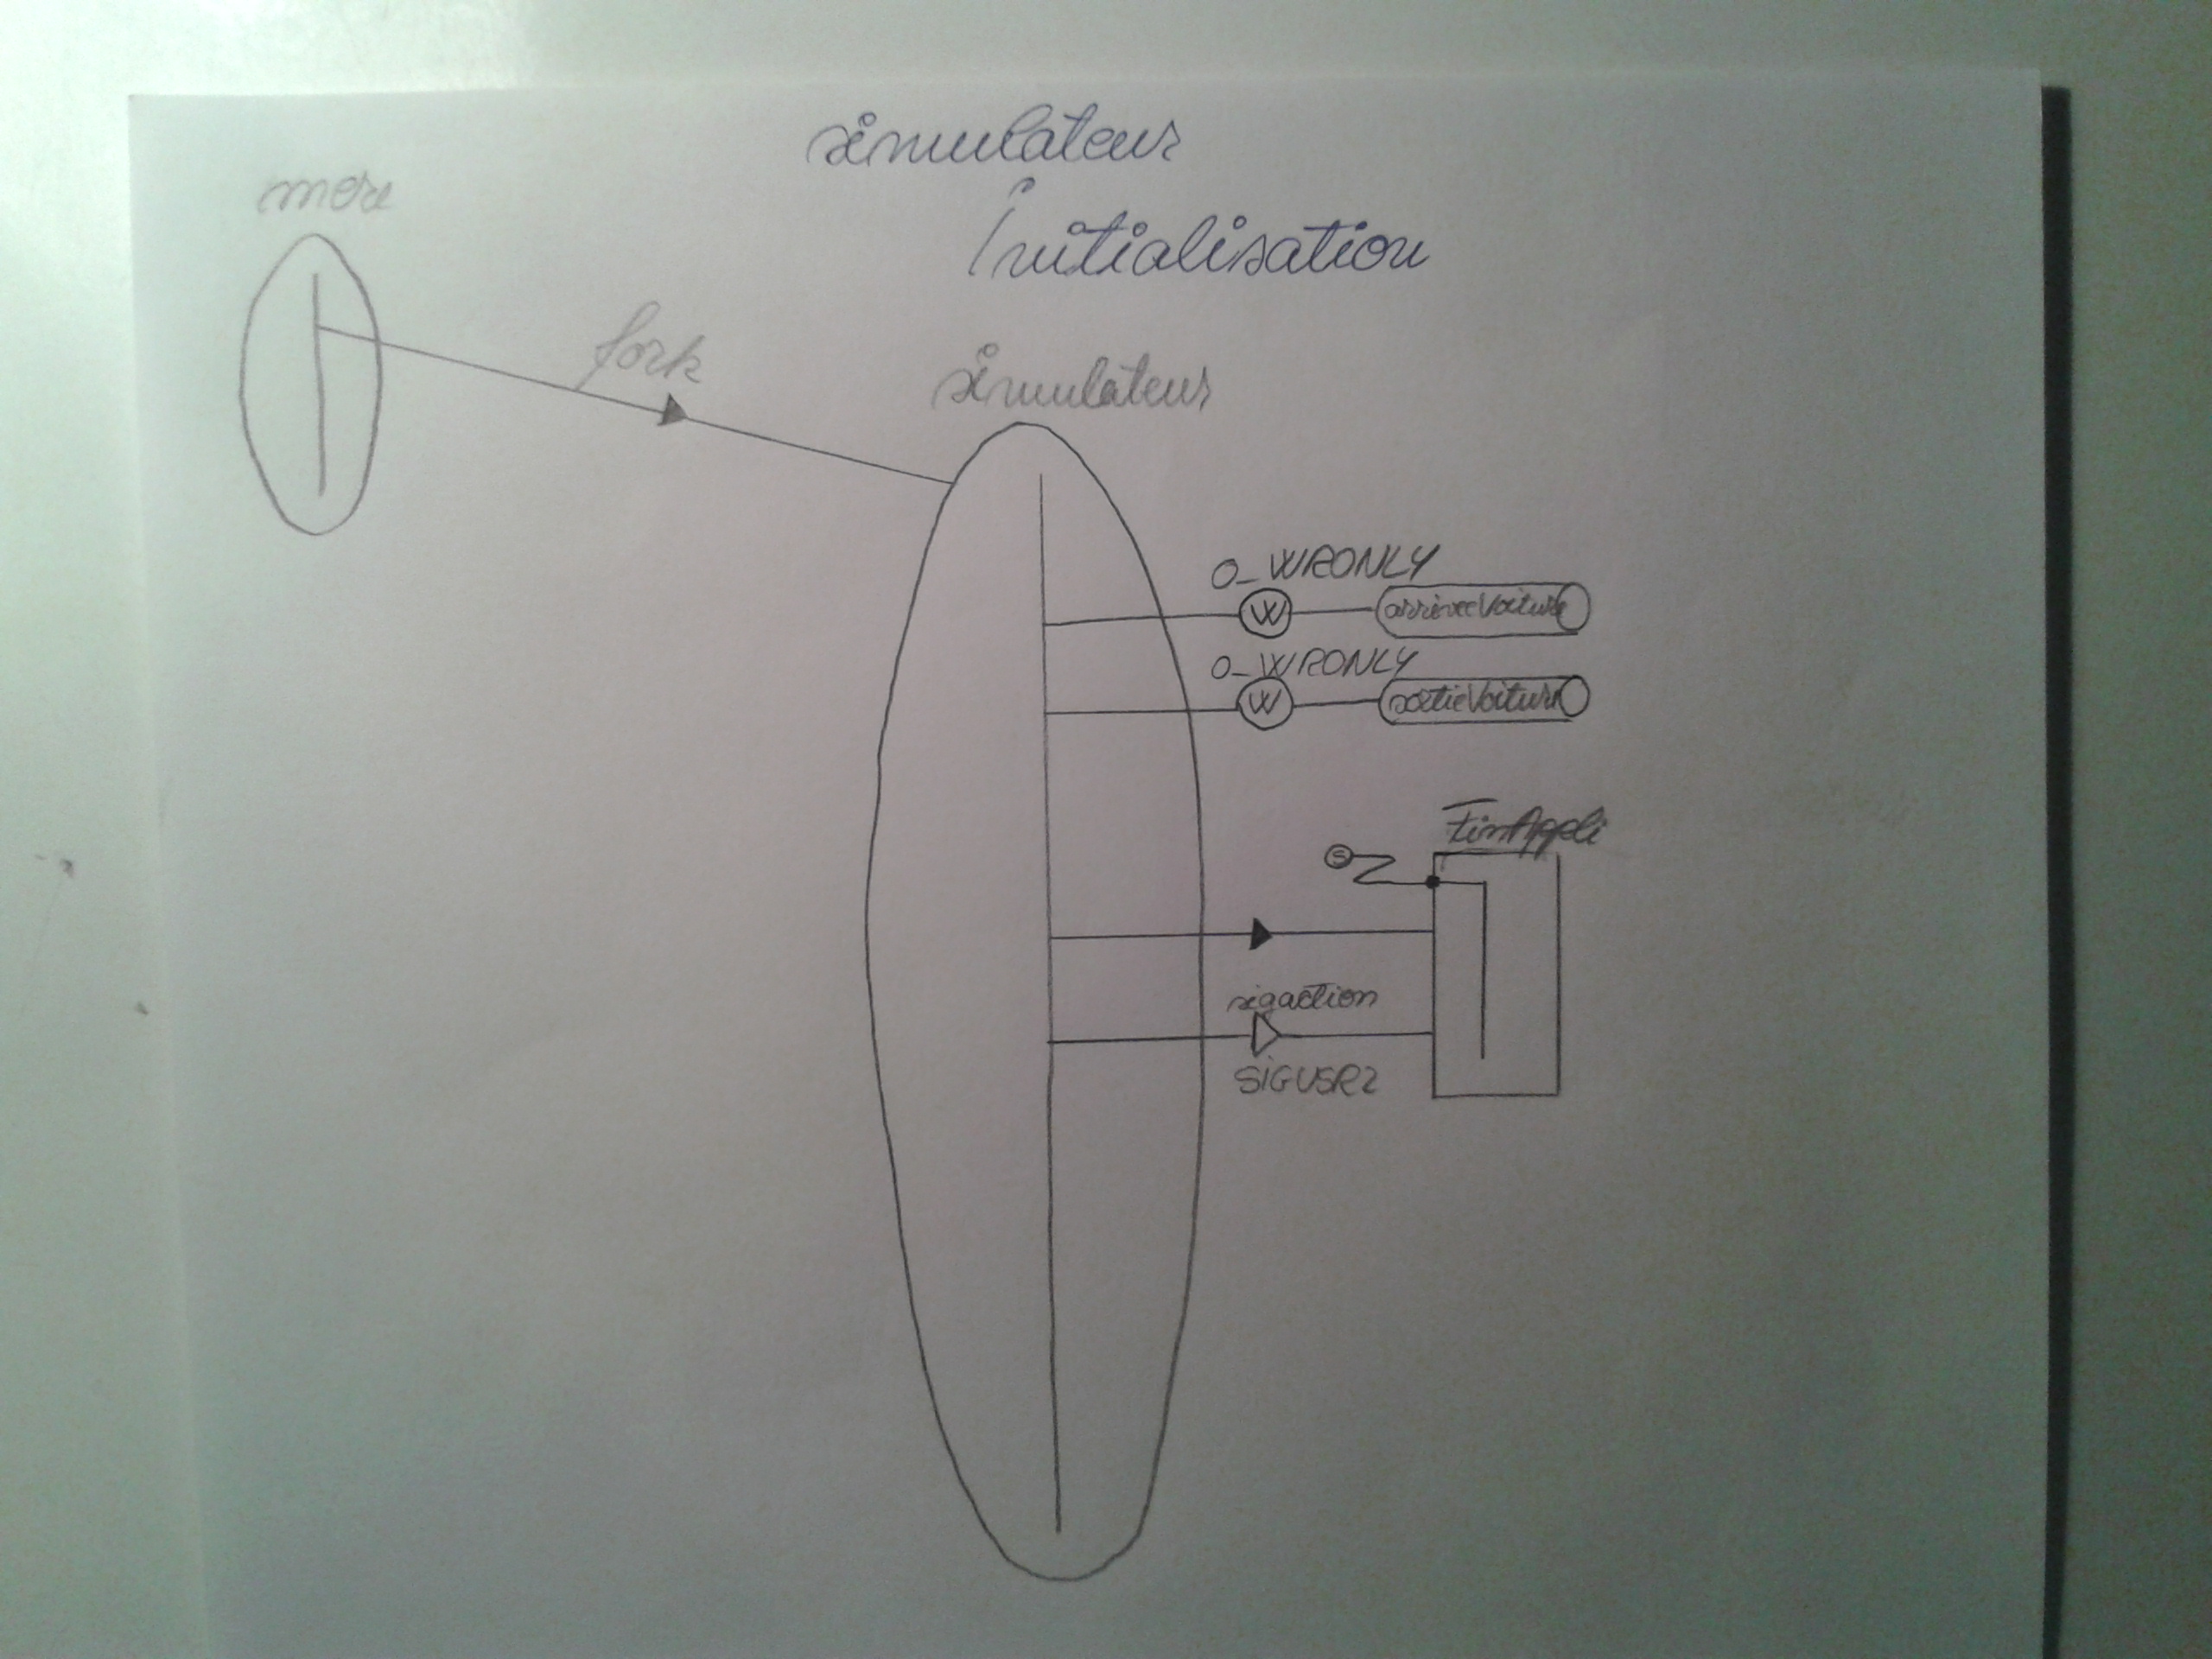 simulateur
Initialisation
mere
fork
simulateur
O_WRONLY
W
arriveeVoiture
O_WRONLY
W
sortieVoiture
FinAppli
S
sigaction
SIGUSR2